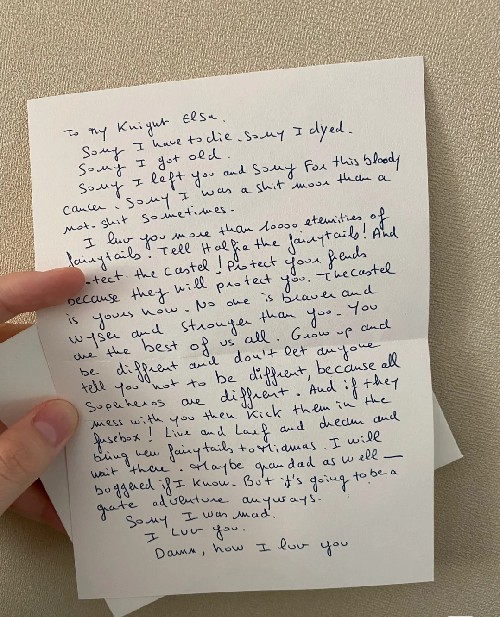 To my Knight Elsa.
Sorry I have to die. Sorry I dyed.
Sorry I got old.
Sorry I left you and sorry for this bloody
cancer. Sorry I was a shit moor than a
not-shit sometimes.
I luv you more than 10000 eternities of
fairytails. Tell Halfie the fairytails! And
protect the castel! Protect your frends
because they will protect you. The castel
is yours now. No one is braver and
wyser and stronger than you. You
are the best of us all. Grow up and
be diffrent and don't let anyone
tell you not to be diffrent, because all
superheros are diffrent. And if they
mess with you then kick them in the
fusebox! Live and Larf and dream and
bring new fairytails to Miamas. I will
wait there. Maybe grandad as well—
buggered if I know. But it's going to be a
grate adventure anyways.
Sorry I was mad.
I Luv you.
Damn, how I luv you